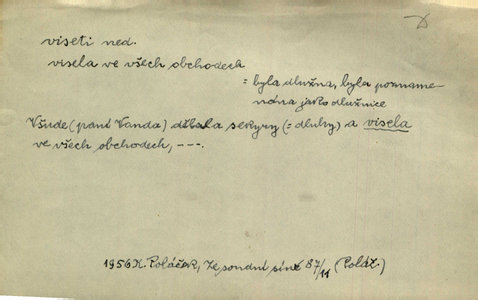 viseti ned.
visela ve všech obchodech
= byla dlužna, byla pozname-
nána jako dlužnice
Všude (paní Vanda) dělala sekyry (= dluhy) a visela
ve všech obchodech, ---.
1956 K. Poláček, Ze soudní síně 87/11 (Poláž)